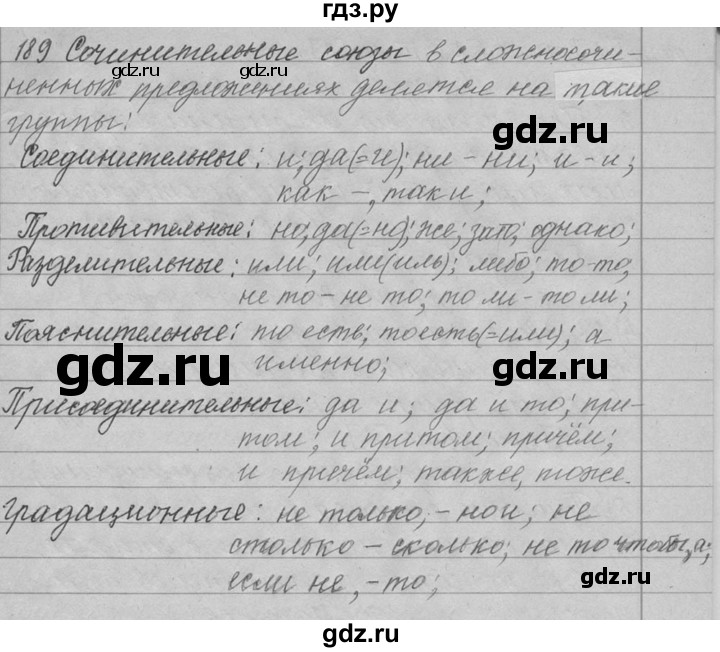 гдз.ру
189 Сочинительные союзы в сложносочи-
gdz.ru gdz.ru
ненных предложениях делятся на такие
группы:
gdz.ru
Соединительные: и; да(=и); ни - ни; и - и;
как -, так и;
Противительные: но, да(=но); же; зато; однако;
gdz.ru gdz.ru
Разделительные: или; или(иль); либо; то-то,
не то - не то; то ли - то ли;
Пояснительные: то есть; тоесть(=или); а
именно;
gdz.ru gdz.ru
Присоединительные: да и; да и то; при-
том; и притом; причём;
gdz.ru
и причём; также, тоже.
градационные: не только, - но и; не
gdz.ru
столько - сколько; не то чтобы, а;
если не, - то;
gdz.ru
gdz.ru